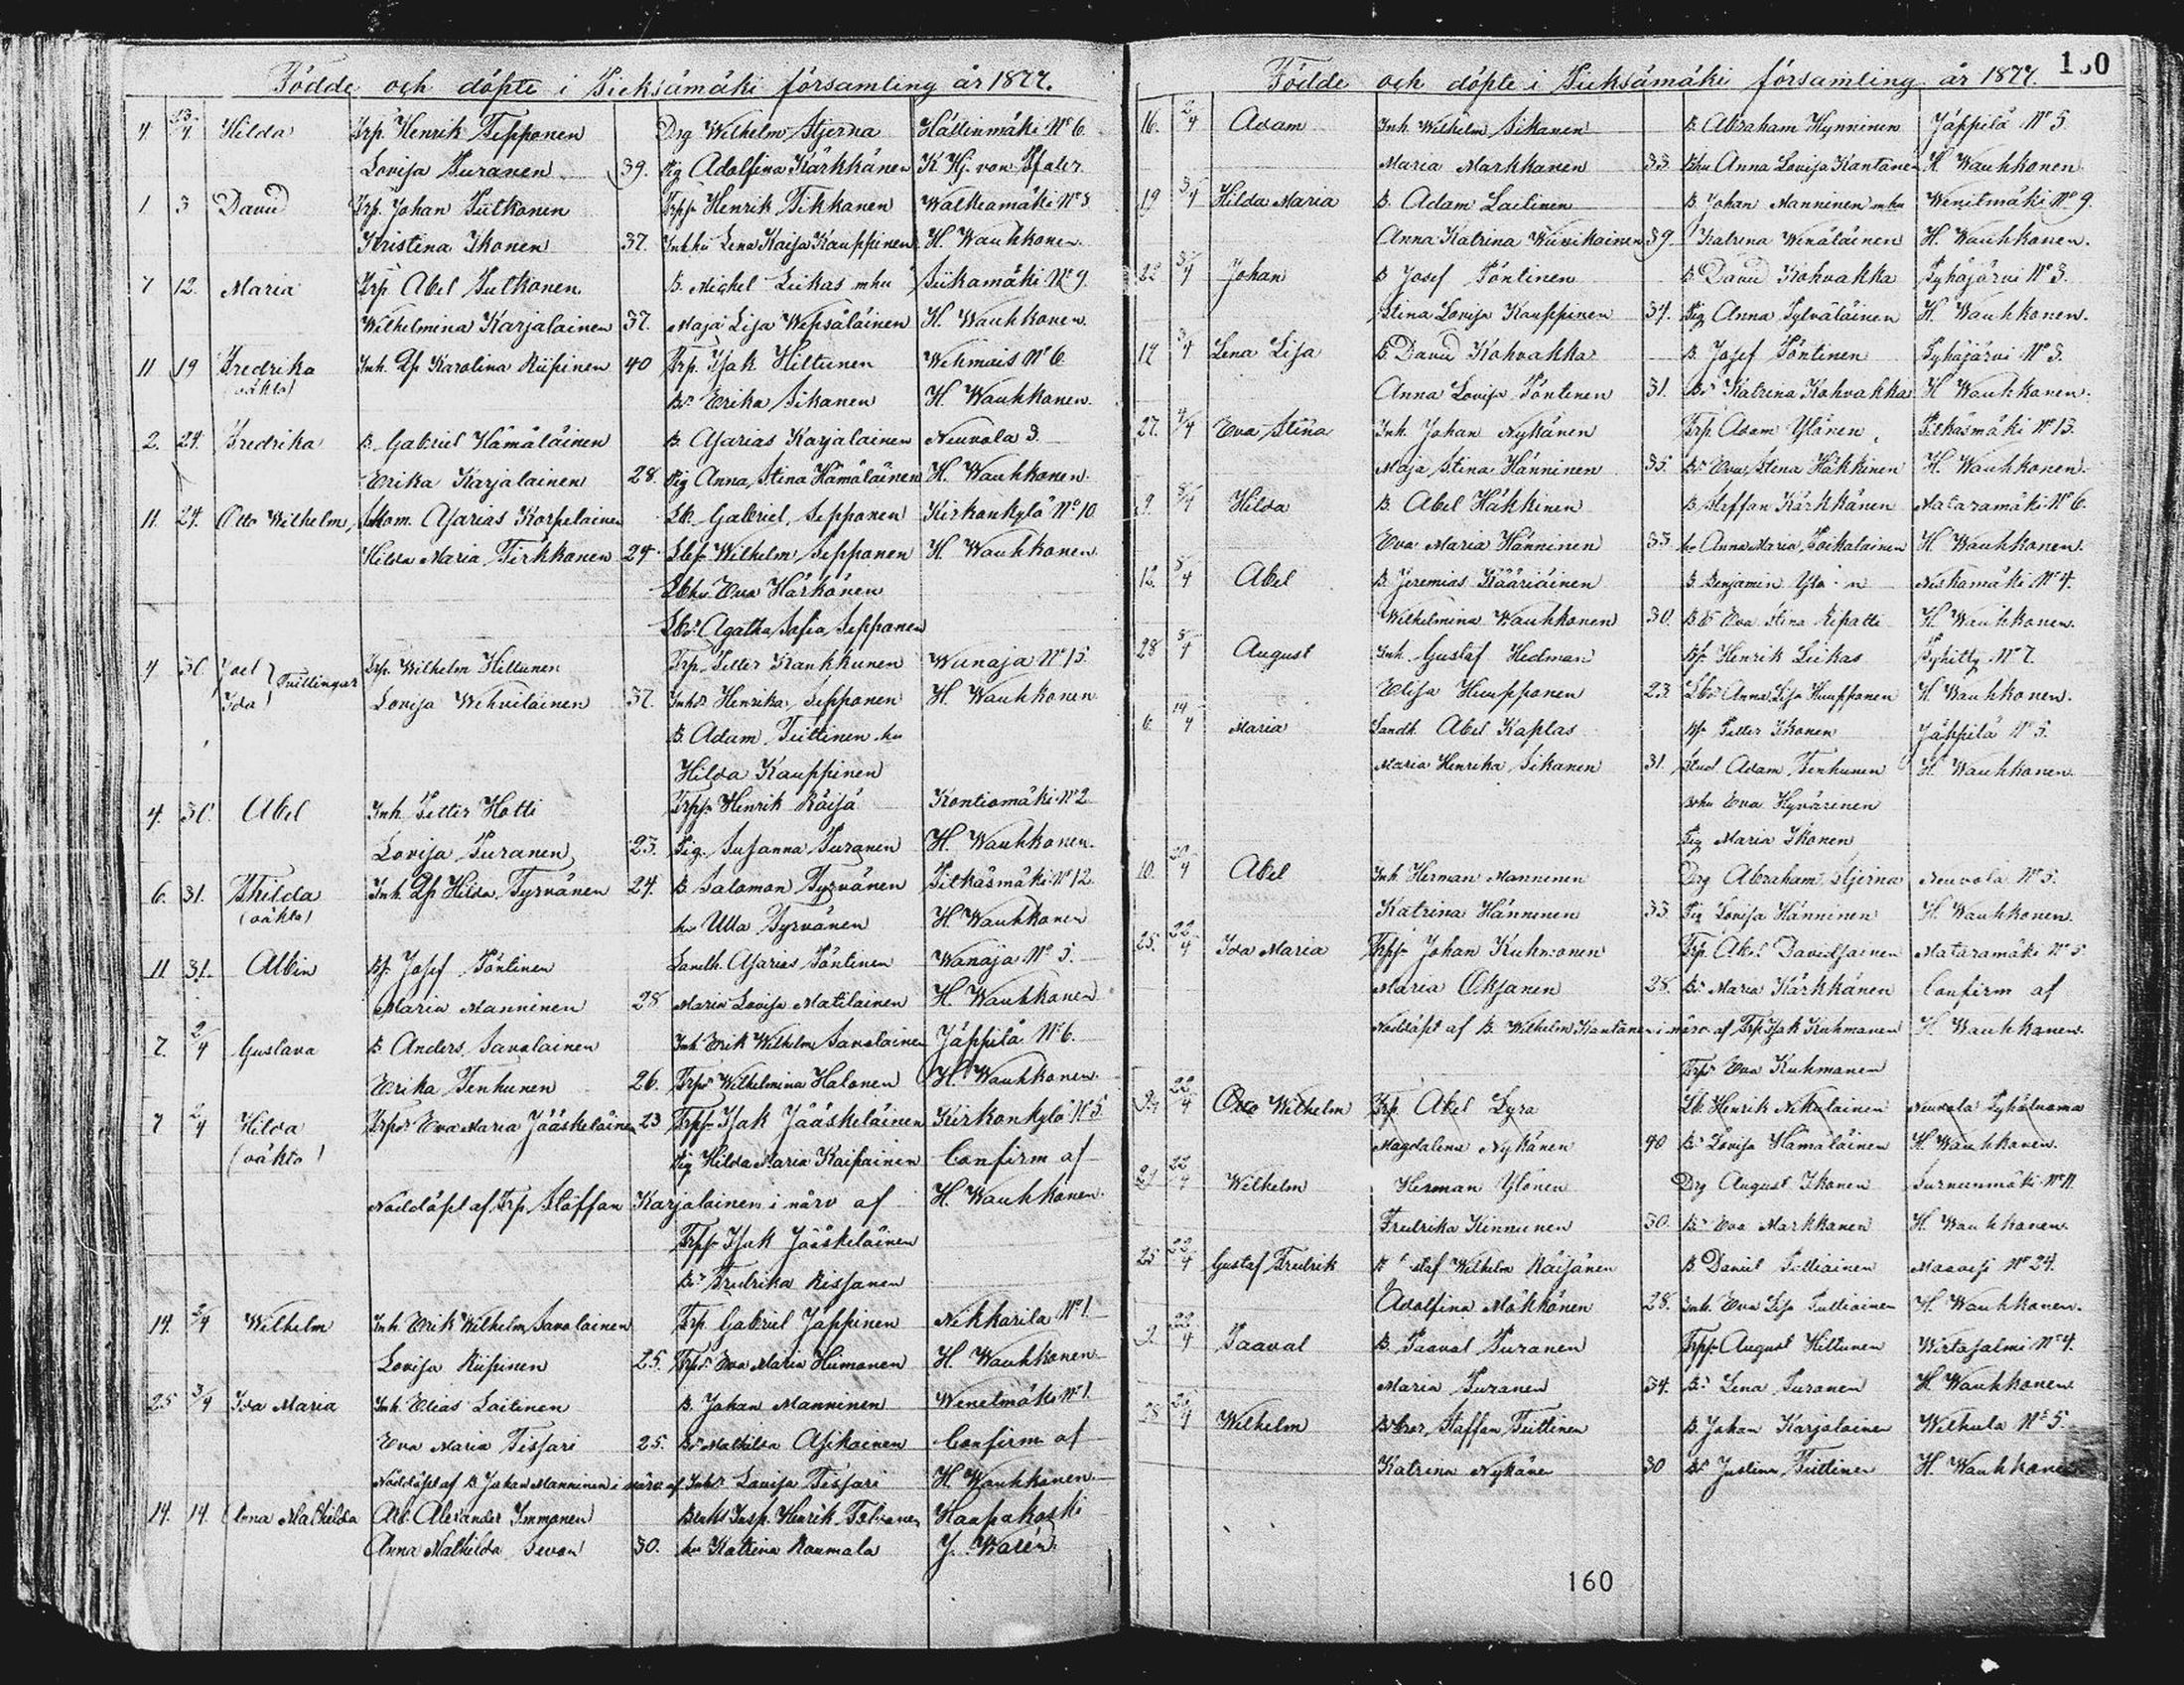 Födde och döpte i Pieksämäki församling år 1877.
4 Hilda Trp. Henrik Tepponen Drg Wilhelm Stjerna Hällinmäki No 6
Lovisa Turanen 39. Pig Adolfina Kärkkänen K. Hj. von Pfaler
1 3 David Trp. Johan Piitkonen Trpp Henrik Tikkanen Walkiamäki No 3
Kristina Ikonen 37. Inhhu Lena Kaisa Kauppinen H. Wauhkonen
7 12. Maria Trp. Abel Putkonen B. Michel Liikas mhu Siikamäki No 9
Wilhelmina Karjalainen 37. Maja Lisa Wepsäläinen H. Wauhkonen.
11 19 Fredrika Inh. Karolina Riipinen 40 Trp. Isak Hiltunen Wehmais No 6
(oäkta) Bdr Erika Sikanen H. Wauhkonen.
2. 24. Fredrika B. Gabriel Hämäläinen B. Asarias Karjalainen Neuvola 3.
Erika Karjalainen 28. Pig Anna Stina Hämäläinen H. Wauhkonen.
11. 24. Otto Wilhelm Skom. Asarias Korpelainen Lb. Gabriel Sepponen Kirkonkylä No 10
Hilda Maria Tirkkonen 24. Lbs Wilhelm Sepponen H. Wauhkonen
Lbhu Eva Härkönen
Lbdr Agatha Sofia Sepponen
4 30. Joel } Tvillingar Trp. Wilhelm Hiltunen Trp. Petter Kankkunen Wanaja No 15
Ida Lovisa Wihvilainen 37. Inhdr Henrika Sepponen H. Wauhkonen
B. Adam Tiittinen hu
Hilda Kauppinen
4. 30. Abel Inh. Petter Hotti Trpp Henrik Räisä Kontiomäki No 2
Lovisa Turanen 23. Pig. Susanna Turanen H. Wauhkonen.
6. 31. Thilda Inh. Hilda Tyrvänen 24. B. Salomon Tyrvänen Pitkäsmäki No 12
(oäkta) hu Ulla Tyrvänen H. Wauhkonen
11 31. Albin Bs. Josef Pöntinen Landh. Asarias Pöntinen Wanaja No 5.
Maria Manninen 28 Maria Lovisa Matilainen H. Wauhkonen
7. 2/4 Gustava B. Anders Savolainen Inh. Erik Wilhelm Savolainen Jäppilä No 6.
Erika Tenhunen 26. Trpdr Wilhelmina Halonen H. Wauhkonen
7 2/4 Hilda Trpdr Eva Maria Jääskeläinen 23 Trpp Isak Jääskeläinen Kirkonkylä No 5
(oäkta) Pig Hilda Maria Kaipainen Confirm af
Nöddöpt af Trp. Staffan Karjalainen i närv af H. Wauhkonen
Trpp Isak Jääskeläinen
Bdr Fredrika Rissanen
14. 2/4 Wilhelm Inh. Erik Wilhelm Savolainen Trp. Gabriel Jäppinen Nikkarila No 1
Lovisa Riipinen 25. Trpdr Eva Maria Himanen H. Wauhkonen
25 3/4 Ida Maria Inh. Elias Laitinen B. Johan Manninen Wenetmäki No 1
Eva Maria Tissari 25. Bdr Mathilda Asikainen Confirm af
Nöddöpt af B. Johan Manninen i närv. af Inhdr Lovisa Tissari H. Wauhkonen.
14. 14. Anna Mathilda Arb. Alexander Immonen Bruks Insp. Henrik Haapakoski
Anna Mathilda 30. hu Katrina Raumala J. Warén.
Födde och döpte i Pieksämäki församling år 1877.
16. 2/4 Adam Inh. Wilhelm Sikanen B. Abraham Hynninen Jäppilä No 5
Maria Markkanen 33 Bhu Anna Lovisa Kantanen H. Wauhkonen
19 3/4 Hilda Maria B. Adam Laitinen B. Johan Manninen mhu Wenetmäki No 9.
Anna Katrina Wäivikainen 39 Katrina Wenäläinen H. Wauhkonen.
22 3/4 Johan B Josef Pöntinen B David Kohvakka Pyhäjärvi No 3.
Stina Lovisa Kauppinen 34. Pig Anna Sylväläinen H. Wauhkonen.
17 3/4 Lena Lisa B. David Kohvakka B. Josef Pöntinen Pyhäjärvi No 3.
Anna Lovisa Pöntinen 31. Bdr Katrina Kohvakka H Wauhkonen.
27. 4/4 Eva Stina Inh. Johan Nykänen Trp Adam Ylönen Pitkäsmäki No 13.
Maja Stina Hänninen 35. Bdr Eva Stina Häkkinen H. Wauhkonen.
9. 8/4 Hilda B. Abel Häkkinen B. Staffan Kärkkänen Nataramäki No 6.
Eva Maria Hänninen 33 hu Anna Maria Poikolainen H. Wauhkonen.
12. 8/4 Abel B. Jeremias Kääriäinen B. Benjamin Niskamäki No 4.
Wilhelmina Wauhkonen 30. Bdr Eva Stina Repatti H. Wauhkonen.
28 8/4 August Inh. Gustaf Hedman Bs. Henrik Liikas Pyhitty No 7.
Elisa Huupponen 23. Lbdr Anna Lisa Huupponen H Wauhkonen.
6. 14/4 Maria Landh. Abel Kaplas Bs. Petter Ikonen Jäppilä No 5.
Maria Henrika Sikanen 31. Stud Adam Tenhunen H. Wauhkonen
Bhu Eva Hyvärinen
Pig Maria Ikonen
10. Abel Inh. Herman Manninen Drg Abraham Stjerna Neuvola No 5.
Katrina Hänninen 33 Pig Lovisa Hänninen H. Wauhkonen.
25. 22/4 Ida Maria Trpp Johan Kuhmonen Trp. Abel Davidsainen Nataramäki No 5
Maria Oksanen 28. Bdr Maria Kärkkänen Confirm af
Nöddöpt af B. Wilhelm Kantanen i närv af Trp. Isak Kuhmonen H. Wauhkonen.
Trpdr Eva Kuhmonen
22/4 Otto Wilhelm Trp. Abel Lyra Lb. Henrik Nikulainen Neuvola
Magdalena Nykänen 40 Bdr Lovisa Hämäläinen H. Wauhkonen.
22/4 Wilhelm Herman Ylönen Drg August Ikonen Surnunmäki No 11
Fredrika Kinnunen 30. Bdr Eva Markkanen H. Wauhkonen.
25 22/4 Gustaf Fredrik Wilhelm Räisänen B Daniel Pulliainen Maavesi No 24.
Adolfina Mökkönen 28. Inh. Eva Lisa Pulliainen H. Wauhkonen.
22/4 Paaval B. Paaval Turanen Trpp August Hiltunen Wirtasalmi No 4.
Maria Turanen 34. Bdr Lena Turanen H Wauhkonen
Wilhelm Staffan Tiittinen B. Johan Karjalainen Wilhula No 5
Katrina Nykäne 30 Bdr Justina Tiittinen H. Wauhkonen
160